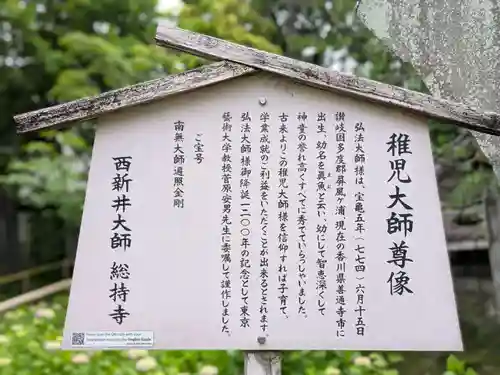 稚児大師尊像
弘法大師様は、宝亀五年（七七四）六月十五日
讃岐国多度郡屏風ヶ浦、現在の香川県善通寺市に
出生、幼名を真魚と云い、幼にして智恵深くして
神童の誉れ高くすべてに秀でていらっしゃいました。
古来よりこの稚児大師様を信仰すれば子育て、
学業成就のご利益をいただくことが出来るとされます。
弘法大師様御降誕一二〇〇年の記念として東京
藝術大学教授菅原安男先生に委嘱して謹作しました。
ご宝号
南無大師遍照金剛
西新井大師 總持寺